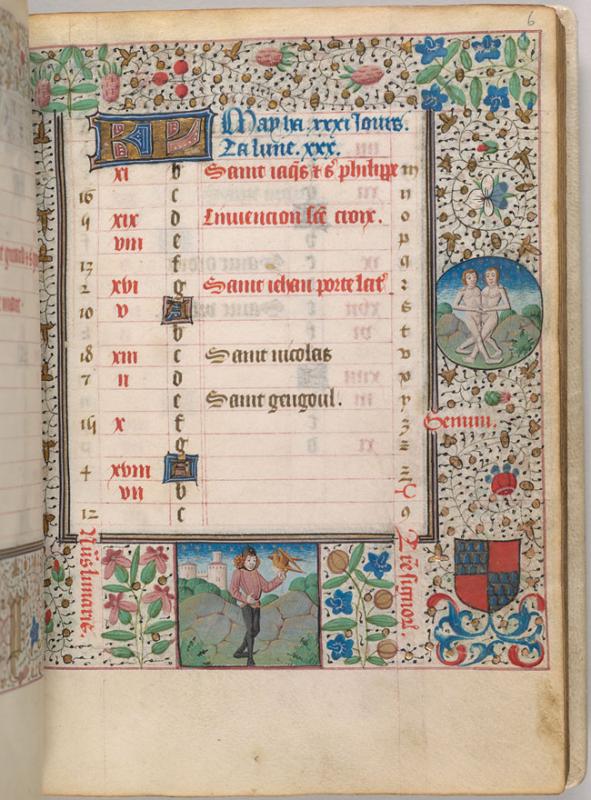 6
KL May ha .xxxi Jours.
La lune. xxx.
xi b Saint iaq̃s & s' philippe m
16 c n
5 xix d Inuencion sc̃e croix. o
viii e p
13 f q
2 xvi g Saint iehan porte lat' r
10 v A s
b t
18 xiii c Saint nicolas v
7 ii d x
e Saint gengoul. y
15 x f z
Gemini.
g
4 xviii A
vii b
12 c 9
Nũs lunaris.
Lr̃e signor.